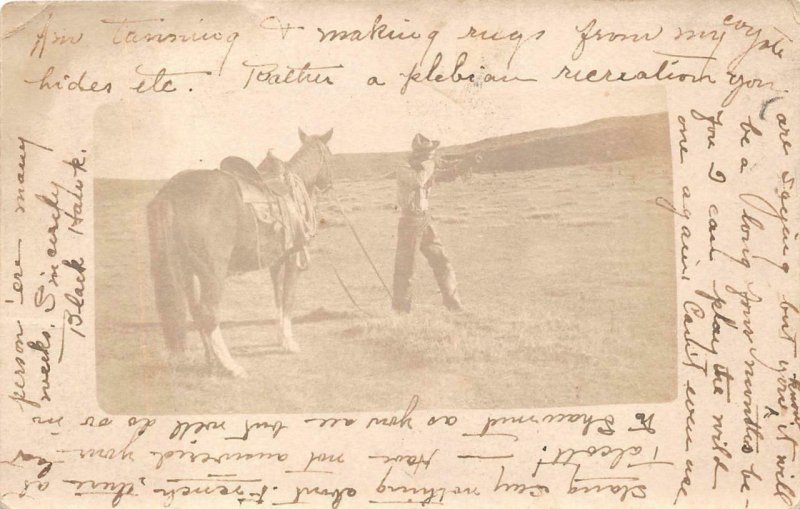 Am tanning & making rugs from my coyote
hides etc. Rather a plebian recreation you
are saying but you know it will
be a long four months be-
fore I can play the wild
one again. Can't even use
slang say nothing about French,
Talcott! — Have not answered your
to Shawmut as you see but will do so in
person 'ere many
weeks. Sincerely
Black Hawk.